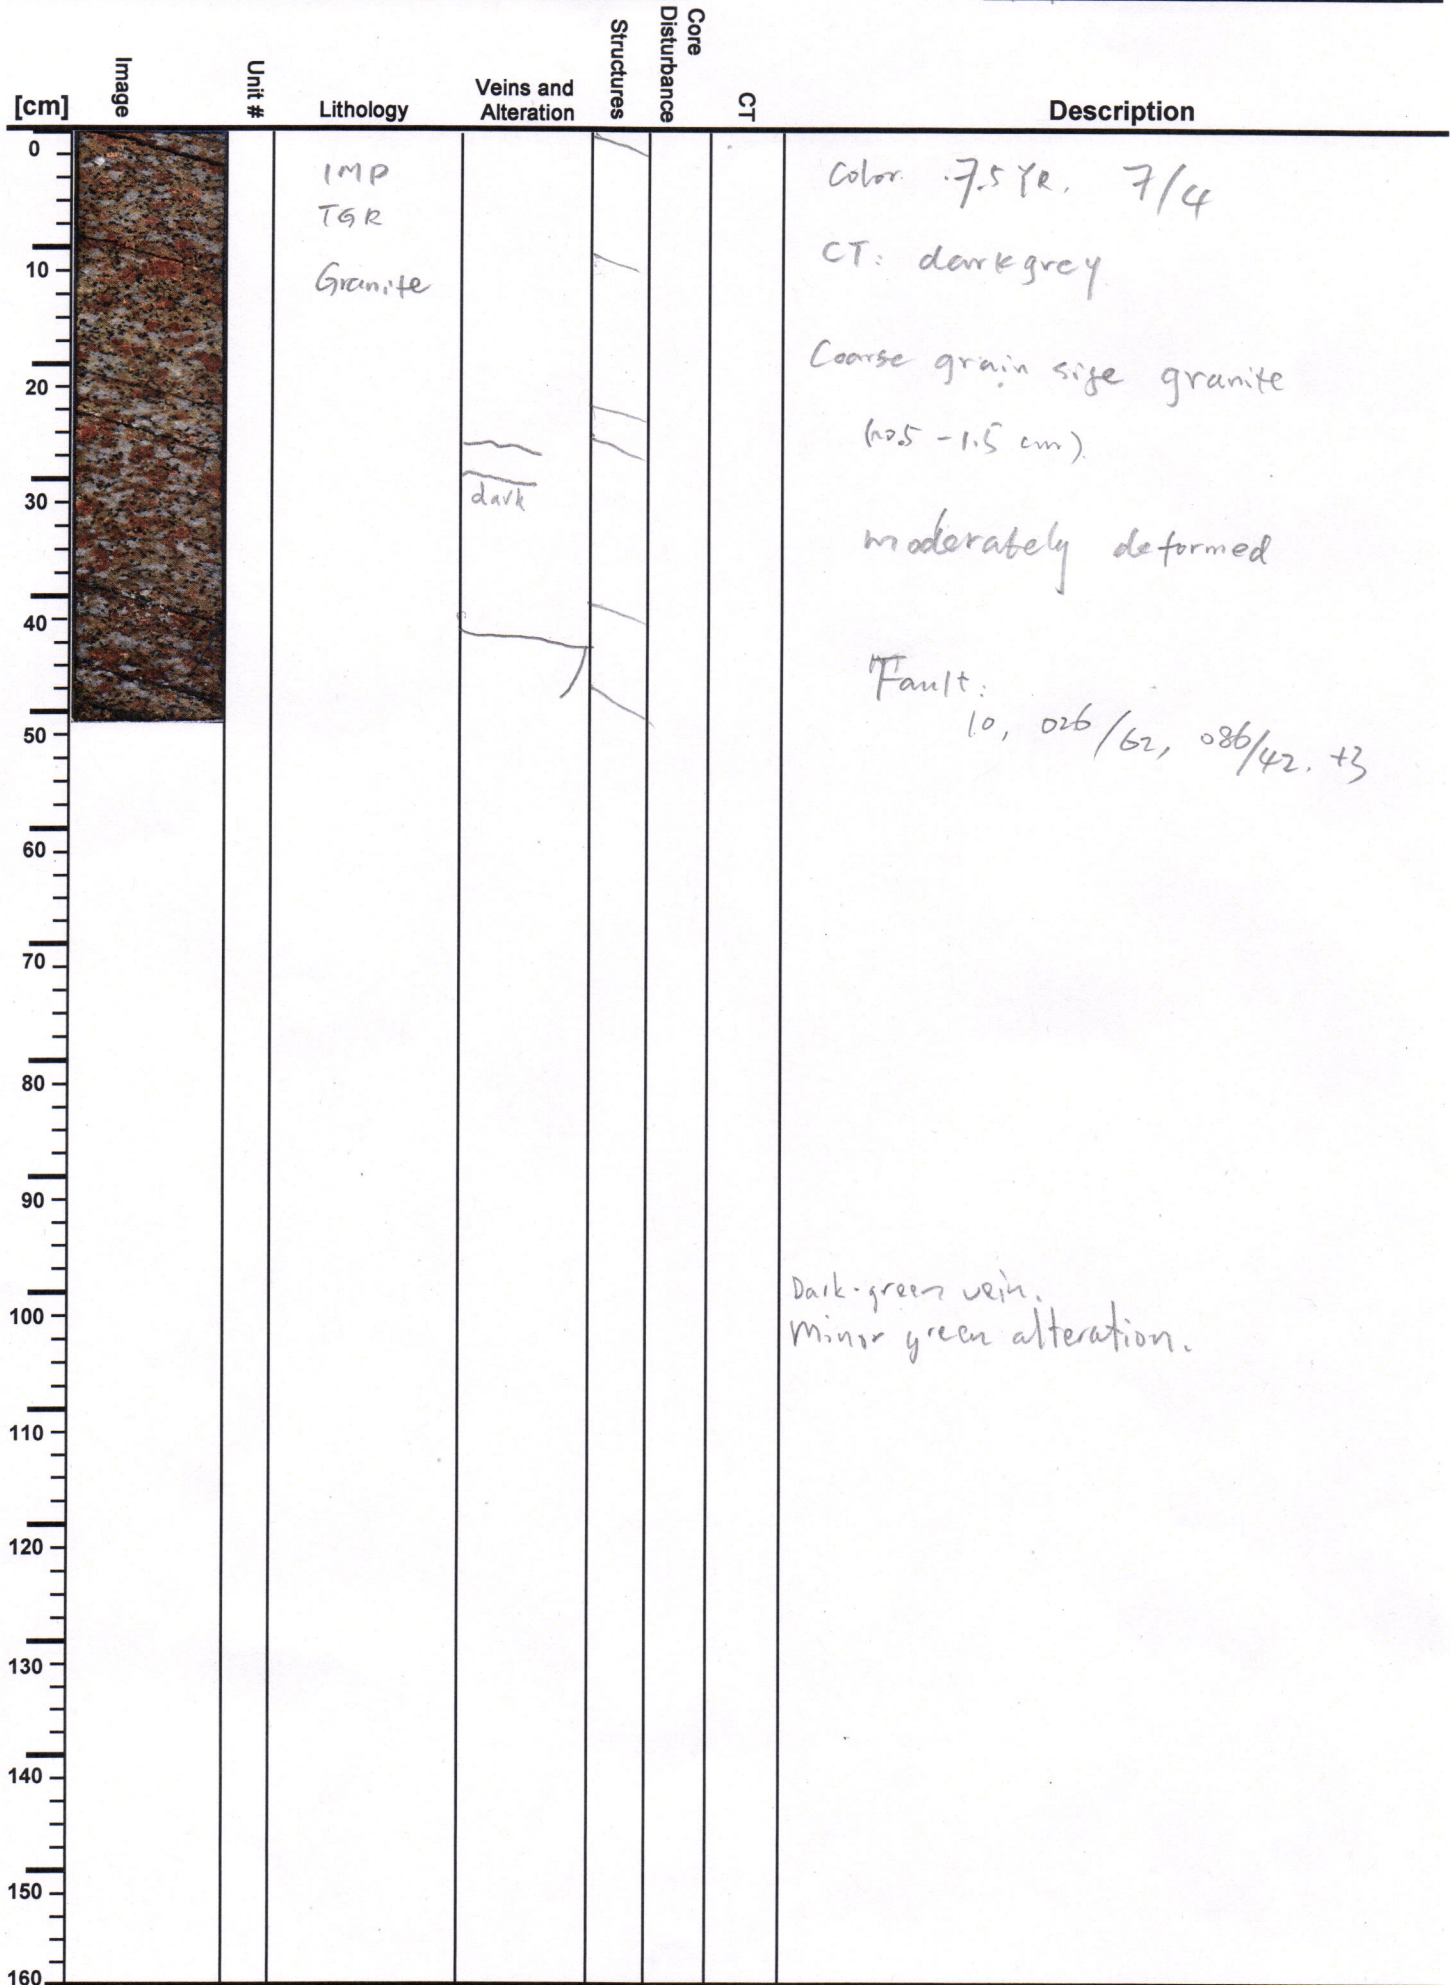 [cm]
Image
Unit #
Lithology
Veins and
Alteration
Structures
Core
Disturbance
CT
Description
0
10
20
30
40
50
60
70
80
90
100
110
120
130
140
150
160
IMP
TGR
Granite
dark
Color. 7.5 YR. 7/4
CT: dark grey
Coarse grain size granite
(~0.5 - 1.5 cm)
moderately deformed
Fault:
10, 026/62, 086/42. +3
Dark-green vein.
Minor green alteration.